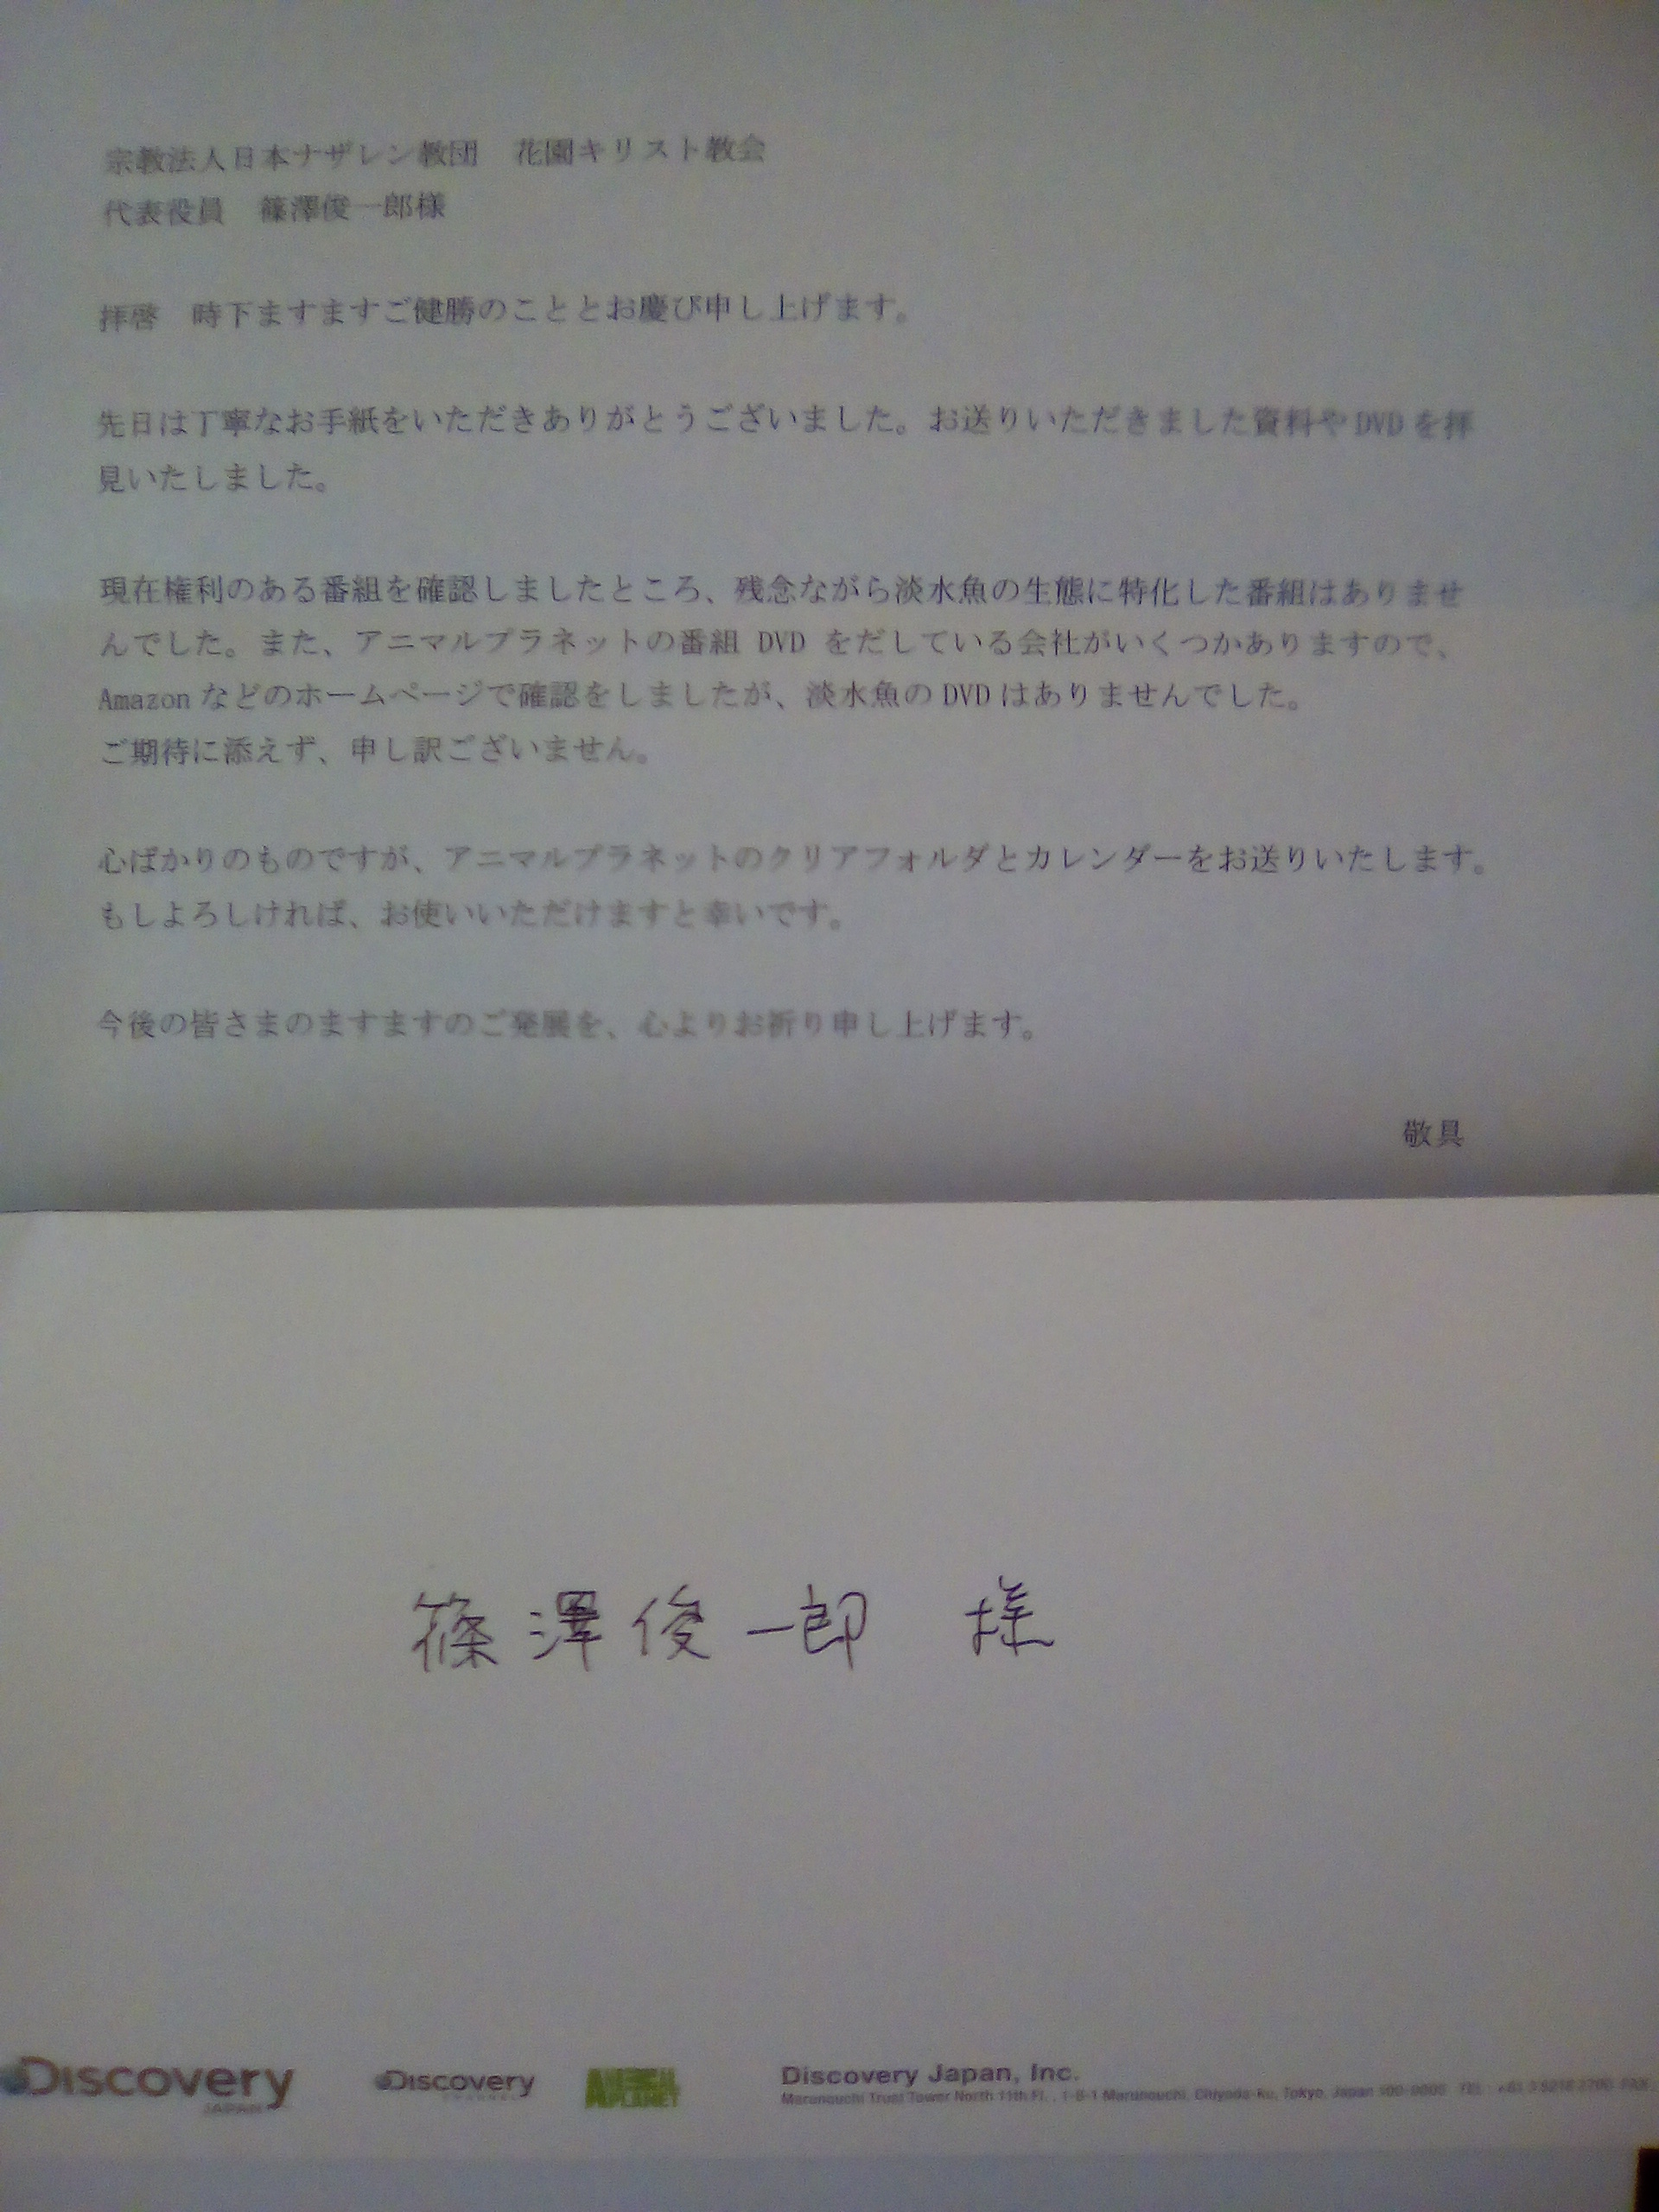 宗教法人日本ナザレン教団　花園キリスト教会
代表役員　篠澤俊一郎様
拝啓　時下ますますご健勝のこととお慶び申し上げます。
先日は丁寧なお手紙をいただきありがとうございました。お送りいただきました資料やDVDを拝
見いたしました。
現在権利のある番組を確認しましたところ、残念ながら淡水魚の生態に特化した番組はありませ
んでした。また、アニマルプラネットの番組 DVD をだしている会社がいくつかありますので、
Amazonなどのホームページで確認をしましたが、淡水魚のDVDはありませんでした。
ご期待に添えず、申し訳ございません。
心ばかりのものですが、アニマルプラネットのクリアフォルダとカレンダーをお送りいたします。
もしよろしければ、お使いいただけますと幸いです。
今後の皆さまのますますのご発展を、心よりお祈り申し上げます。
敬具
篠澤俊一郎　様
Discovery JAPAN
Discovery CHANNEL
ANIMAL PLANET
Discovery Japan, Inc.
Marunouchi Trust Tower North 11th Fl., 1-8-1 Marunouchi, Chiyoda-ku, Tokyo, Japan